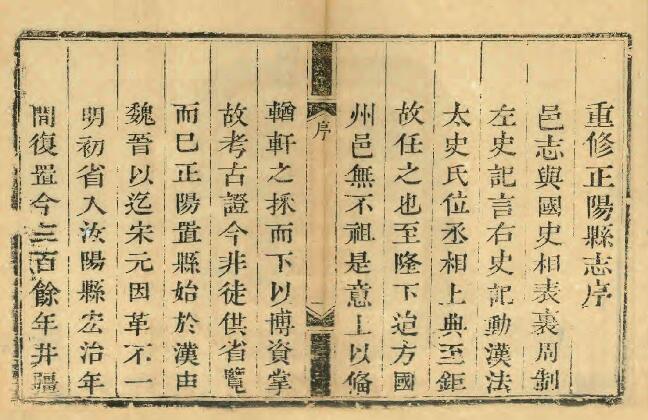 重修正陽縣志序
邑志與國史相表裏周制
左史記言右史記動漢法
太史氏位丞相上典至鉅
故任之也至隆下迨方國
州邑無不祖是意上以備
序
一
輶軒之採而下以博資掌
故考古證今非徒供省覽
而巳正陽置縣始於漢由
魏晉以迄宋元因革不一
明初省入汝陽縣宏治年
間復置今三百餘年井疆